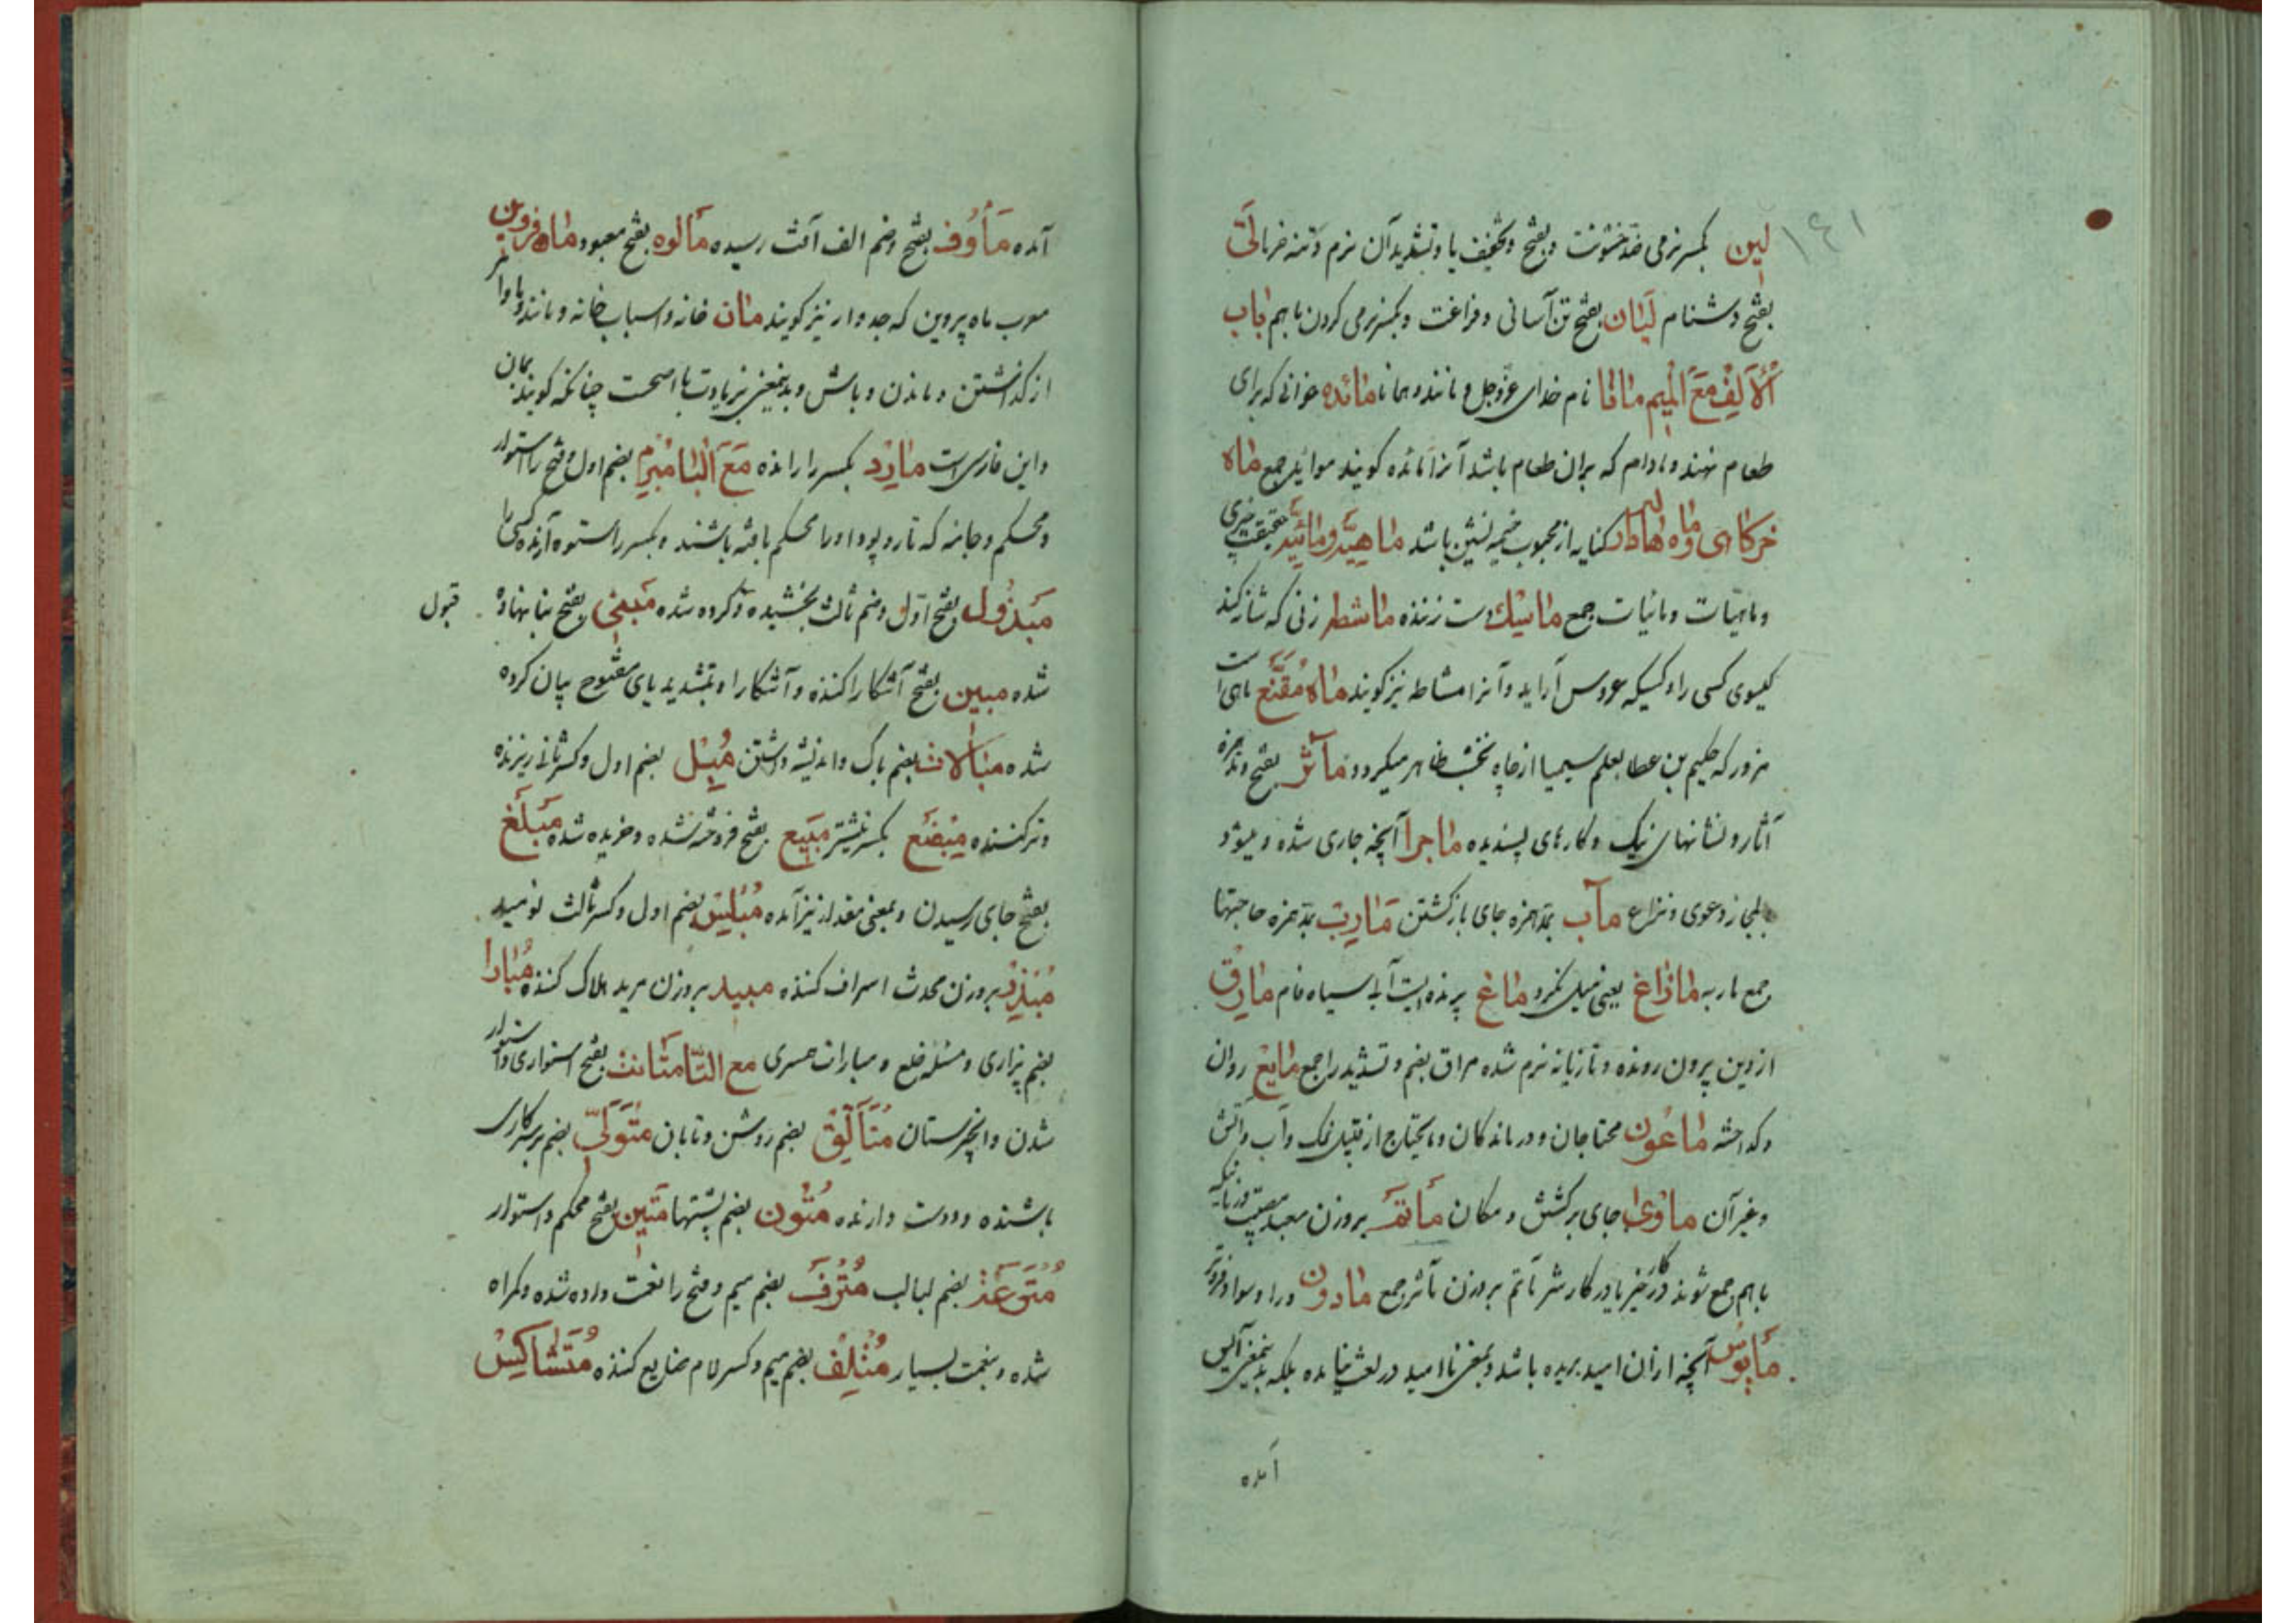 ۱۴۱
لین بکسر نرمی ضد خشونت و بفتح و تخفیف یا و تشدید آن نرم و تنه خرما لَیّ
بفتح دشنام لَیَان بفتح تن آسانی و فراغت و بکسر نرمی کردن با هم باب
اَلْاَلِف مَعَ الْمیم مانا نام خدای عزّوجل و مانند و همانا مائده خوانی که برای
طعام نهند و مادام که بران طعام باشد آنرا مائده کویند موائد جمع ماه
خرکاهی و ماه کنایه از محبوب خیمه نشین باشد ماهیّة و مائیّة حقیقت چیزی
و ماهیّات و مائیات جمع ماسِك دست زننده ماشطه زنی که شانه کند
کیسوی کسی را و کسیکه عروس آراید و آنرا مشاطه نیز کویند ماه مُقَنَّع ماهی است
مزور که حکیم بن عطا بعلم سیمیا از چاه نخشب ظاهر میکردد مآثر بفتح و مد همزه
آثار و نشانهای نیک و کارهای پسندیده ماجرا آنچه جاری شده و میشود
بمجاز دعوی و نزاع مآب بمد همزه جای بازکشتن مَارِب بمد همزه حاجتها
جمع ماربه مازاغ یعنی میل نکرد ماغ پرنده ایست آبی سیاه فام مارق
از دین بیرون رونده و تازیانه نرم شده مراق بضم و تشدید را جمع مایع روان
و کداخته ماعون محتاجان و درماندکان و مایحتاج از قبیل نمک و آب و آتش
و غیر آن ماوی جای برکشتن و مکان مَاتَم بروزن معبد مصیبت و زنانیکه
با هم جمع شوند در کار خیر یا در کار شر مآتم بروزن مآثر جمع مادون ورا و سوا و فروتر
مَایوس آنچه از ان امید بریده باشد و بمعنی ناامید در لغت نیامده بلکه بدینمعنی آیس
آمده
آمده مَأوُف بفتح و ضم الف آفت رسیده مألوه بفتح معبود ماه فروین
معرب ماه پروین که جدوار نیز کویند مان خانه و اسباب خانه و مانند و با و امر
از کذاشتن و ماندن و باش و بدینمعنی بزیادت با اصحت چنانکه کویند بمان
و این فارسی است مارِد بکسر را رانده مَعَ الْبَا مُبْرَم بضم اول و فتح را استوار
و محکم و جامه که تار و پود او را محکم بافته باشند و بکسر را ستوه آرنده کسی را
مَبْذُول بفتح اوّل و ضم ثالث بخشیده و کرده شده مَبنی بفتح بنا نهاده قبول
شده مبین بفتح آشکارا کننده و آشکارا و بتشدید یای مفتوح بیان کرده
شده مبَالات بضم باک و اندیشه داشتن مُبِل بضم اول و کسر ثانی ریزنده
و ترکننده مِبْضَع بکسر نیشتر مَبیع بفتح فروخته شده و خریده شده مَبْلَغ
بفتح جای رسیدن و بمعنی مقدار نیز آمده مُبْلِس بضم اول و کسر ثالث نومید
مُبَذِّر بروزن محدث اسراف کننده مبید بروزن مرید هلاک کننده مُبارا
بضم بیزاری و مسئله خلع و مبارات همسری مع التّا مَتَانَت بفتح استواری و استوار
شدن و انجیرستان مُتَألِّق بضم روشن و تابان متوَلّی بضم برسر کاری
باشنده و دوست دارنده مُتُون بضم پشتها مَتین بفتح محکم و استوار
بضم لبالب مُتْرَف بضم میم و فتح را نعمت داده شده و کمراه
شده و بنعمت بسیار مُتْلِف بضم میم و کسر لام ضایع کننده مُتَشاکِس